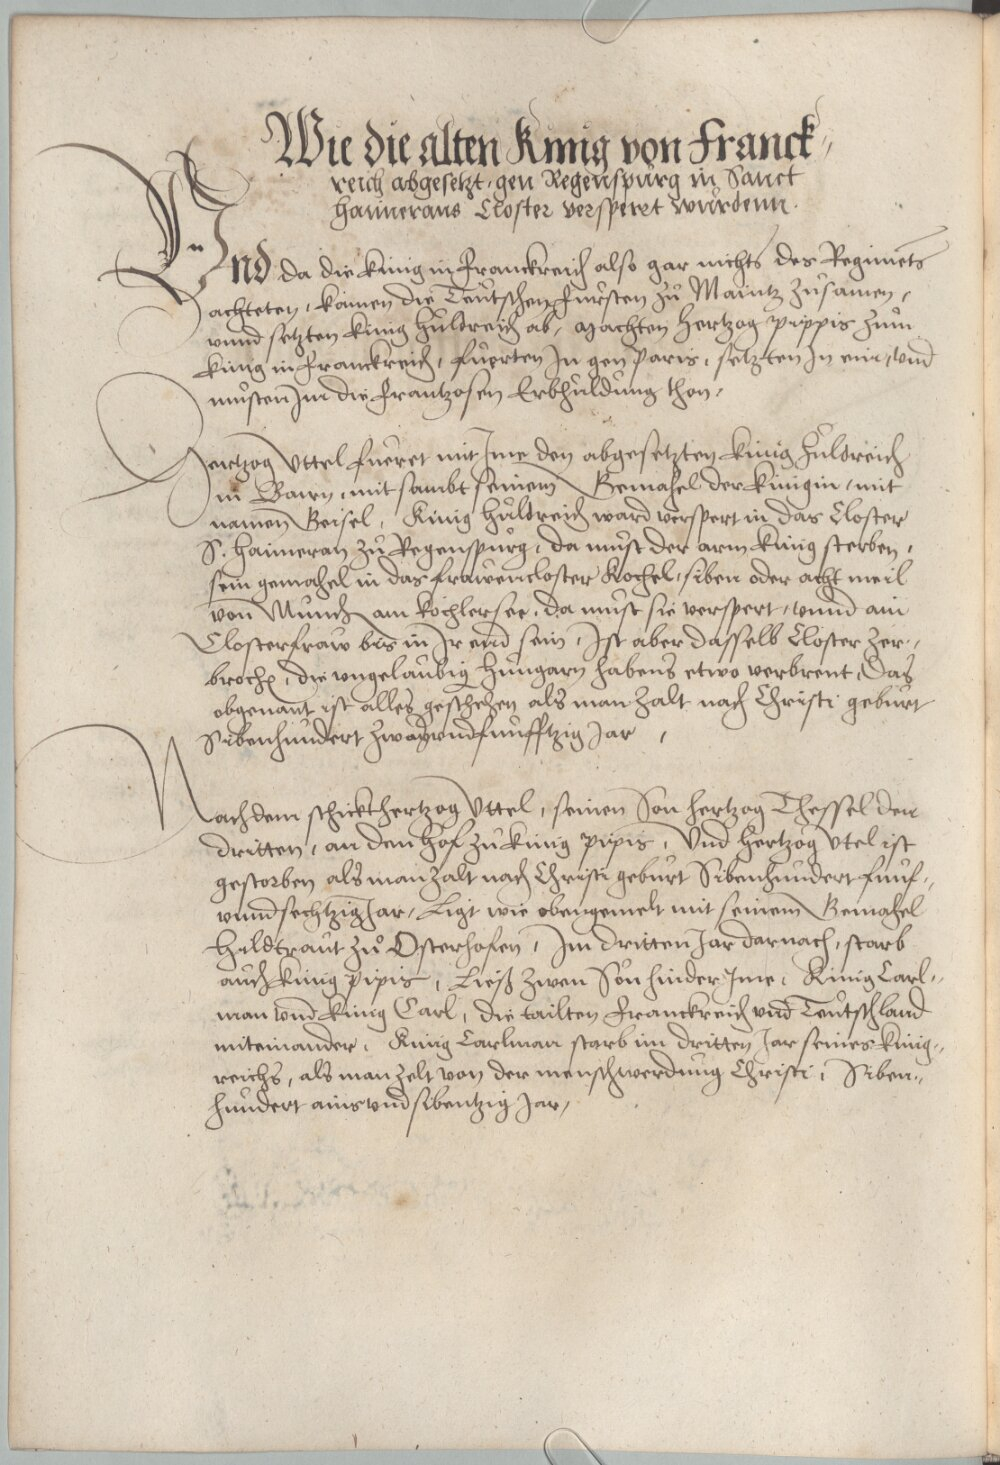 Wie die alten Künig von Franck-
reich abgesetzt, gen Regenspurg in Sanct
Haimerans Closter versperrt wurdenn.
Und da die künig in Franckreich also gar nichts des Regiments
achteten, kamen die Teutschen Fursten zu Maintz zusamen,
vnnd setzten künig Huldreich ab, machten Hertzog Pippis zum
künig in Franckreich, fuerten In gen Paris, setzten In ein, vnd
musten Im die Frantzosen Erbhuldung thon,
Hertzog Uttel fueret mit Ime den abgesetzten künig Huldreich
in Bairn, mit sambt seinem Gemahel der künigin, mit
namen Geisel, Künig Huldreich ward verspert in das Closter
S. Haimeran zu Regenspurg, da must der arm künig sterben,
sein gemahel in das frawencloster Kochel, siben oder acht meil
von Munch am kochlersee, da must sie verspert, vnnd ain
Closterfraw bis in Ir end sein, Ist aber dasselb Closter zer-
broch, die vngelaubig Hungarn habens etwo verbrent, Das
obgenant ist alles geschehen als man zalt nach Christi geburt
Sibenhundert zwayvndfunfftzig Jar,
Nachdem schickt hertzog Uttel, seinen Son hertzog Thessel den
dritten, an den Hof zu künig Pipis, Vnd Hertzog Utel ist
gestorben als man zalt nach Christi geburt Sibenhundert funf-
vnnd sechtzig Jar, Ligt wie obengemelt mit seinem Gemahel
Hildtraut zu Osterhofen, Im dritten Jar darnach, starb
auch künig Pipis, Ließ zwen Sön hinder Ime, Künig Carl-
man vnd künig Carl, die tailten Franckreich vnd Teutschland
miteinander, Künig Carlman starb im dritten Jar seines künig-
reichs, als man zelt von der menschwerdung Christi, Siben-
hundert ains vnd sibentzig Jar,